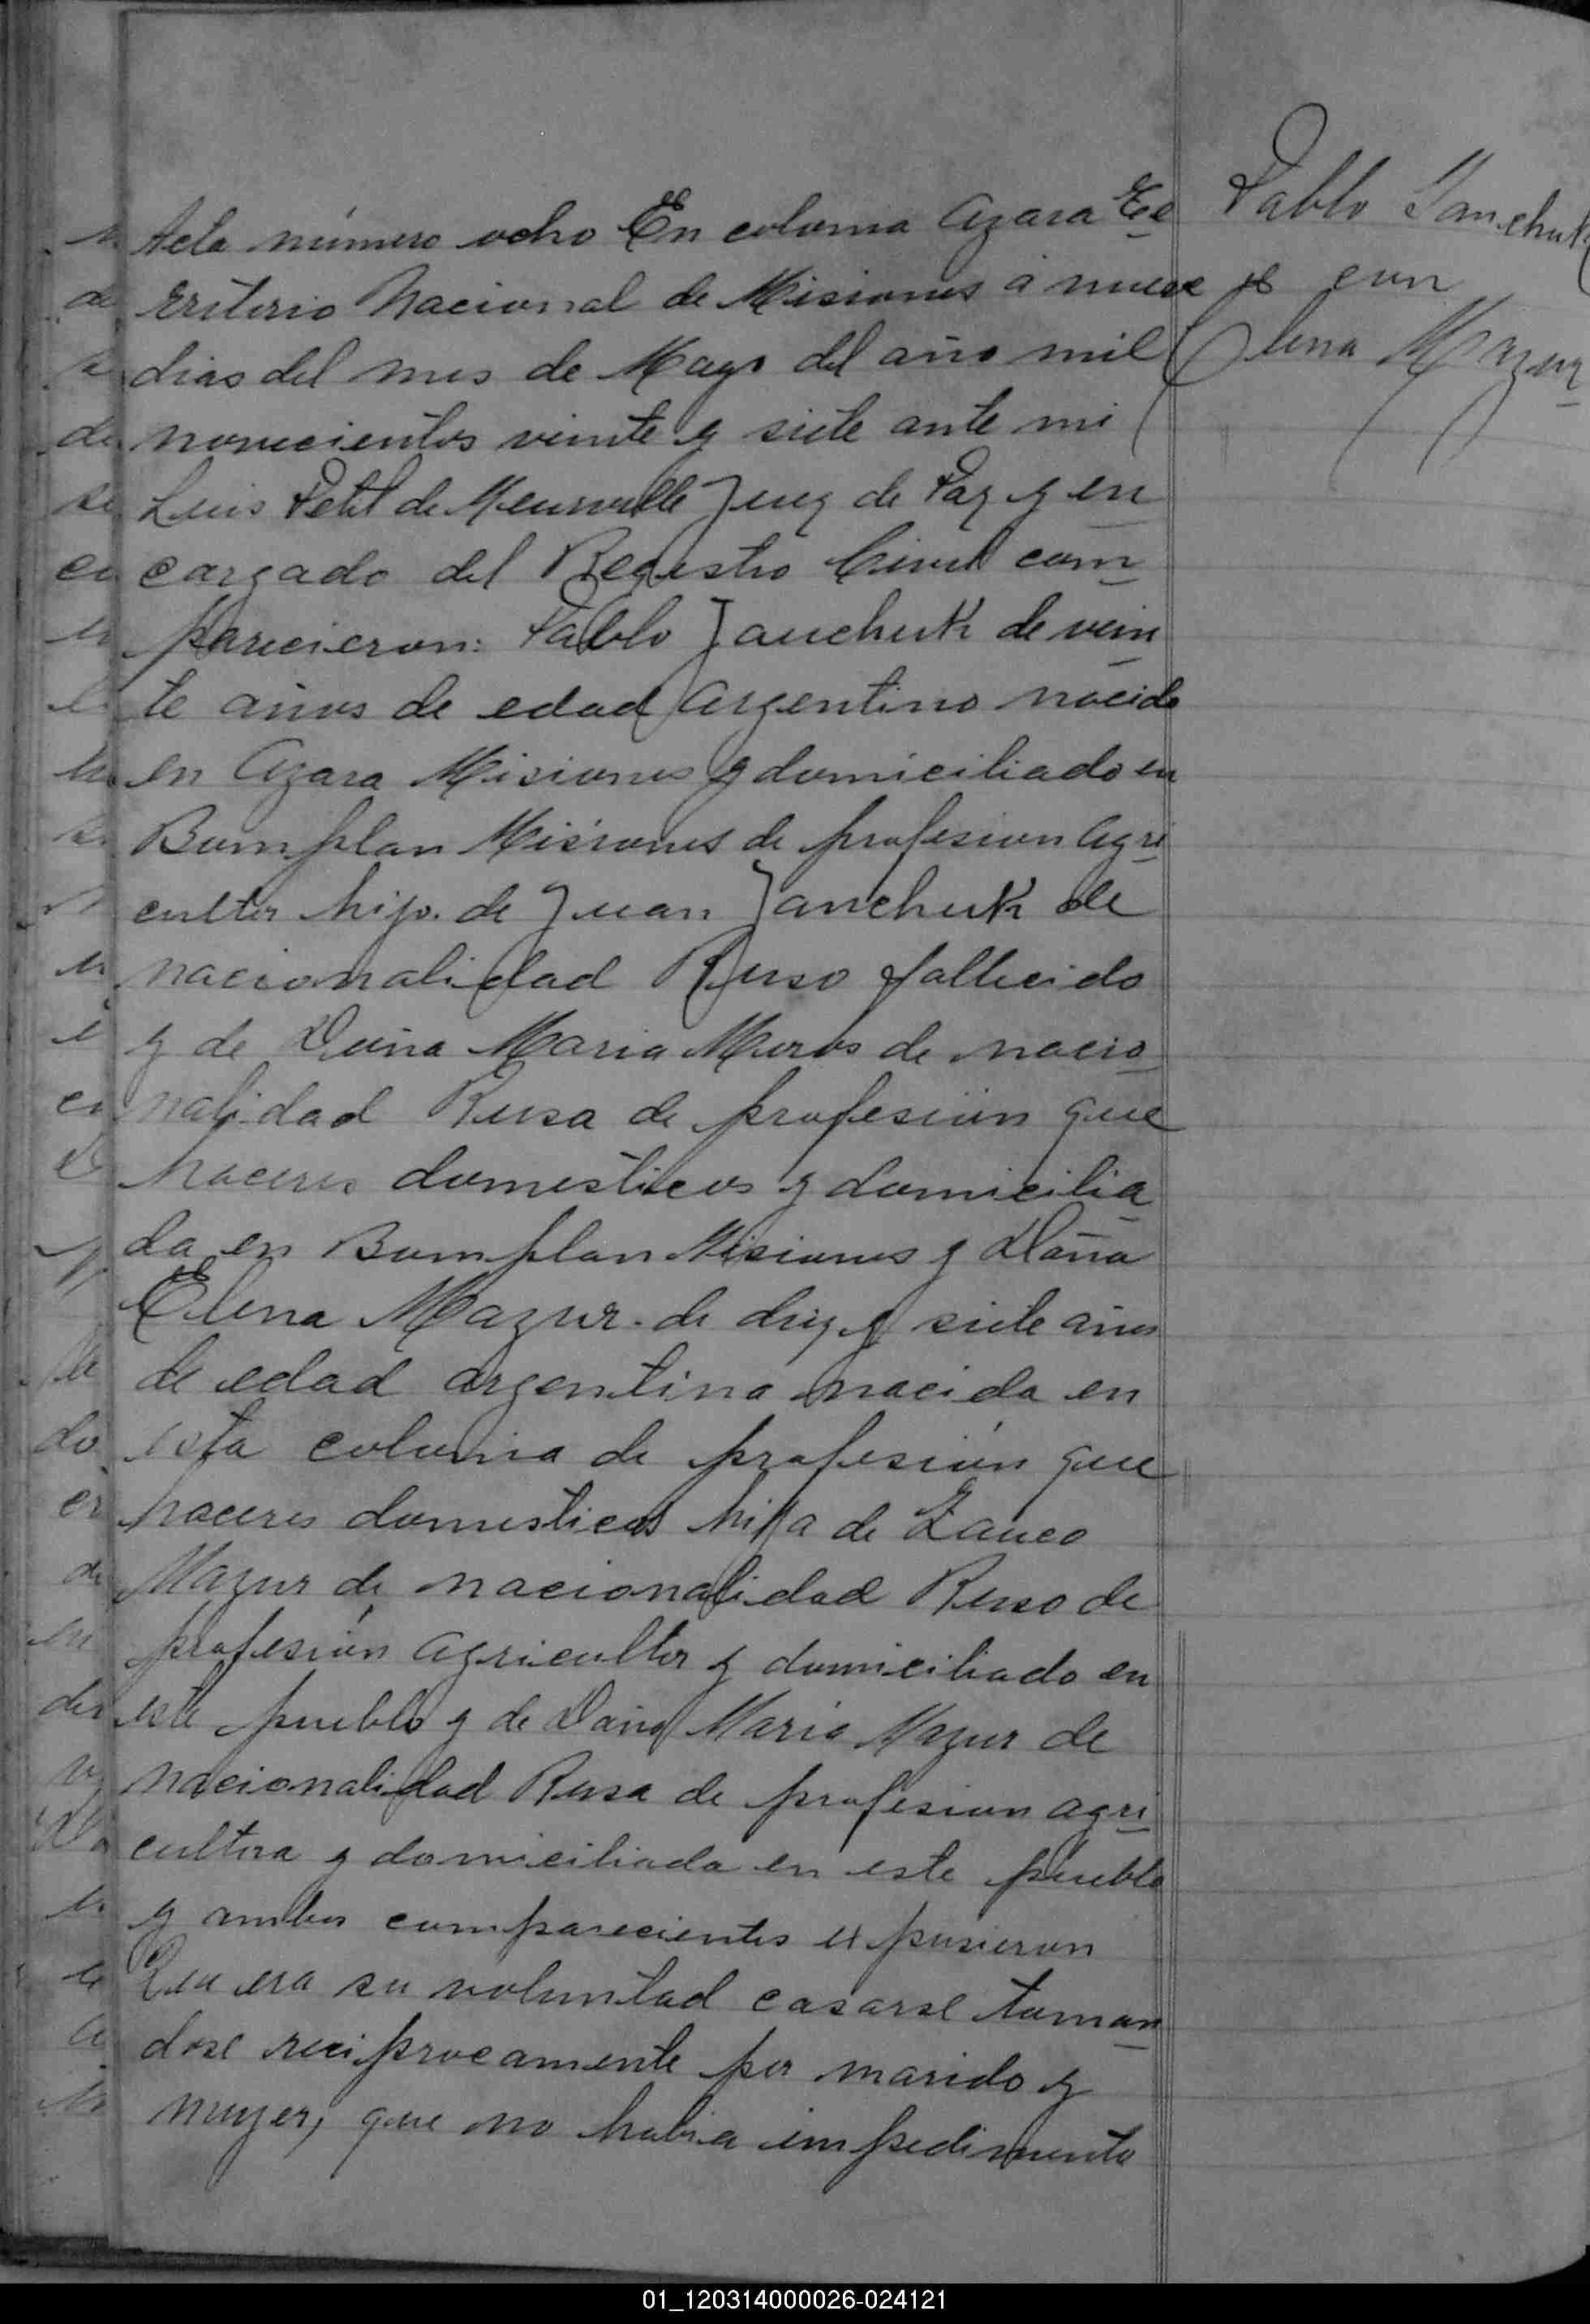 Acta número ocho En colonia Azara Te
rritorio Nacional de Misiones á nueve
dias del mes de Mayo del año mil
novecientos veinte y siete ante mi
Luis Petit de Meurville Juez de Paz y en
cargado del Registro Civil com
parecieron: Pablo Janchuk de vein
te años de edad Argentino nacido
en Azara Misiones y domiciliado en
Bomplan Misiones de profesion Agri
cultor hijo de Juan Janchuk de
nacionalidad Ruso fallecido
y de Doña Maria Muros de nacio
nalidad Rusa de profesión que
haceres domesticos y domicilia
da en Bomplan Misiones y Doña
Elena Mazur de diez y siete años
de edad argentina nacida en
esta colonia de profesión que
haceres domesticos hija de
Mazur de nacionalidad Ruso de
profesión agricultor y domiciliado en
este pueblo y de Doña Maria Mazur de
nacionalidad Rusa de profesion agri
cultora y domiciliada en este pueblo
y ambos comparecientes expusieron
Que era su voluntad casarse toman
dose reciprocamente por marido y
muger, que no habia impedimento
Pablo Janchuk
con
Elena Mazur
01_120314000026-024121